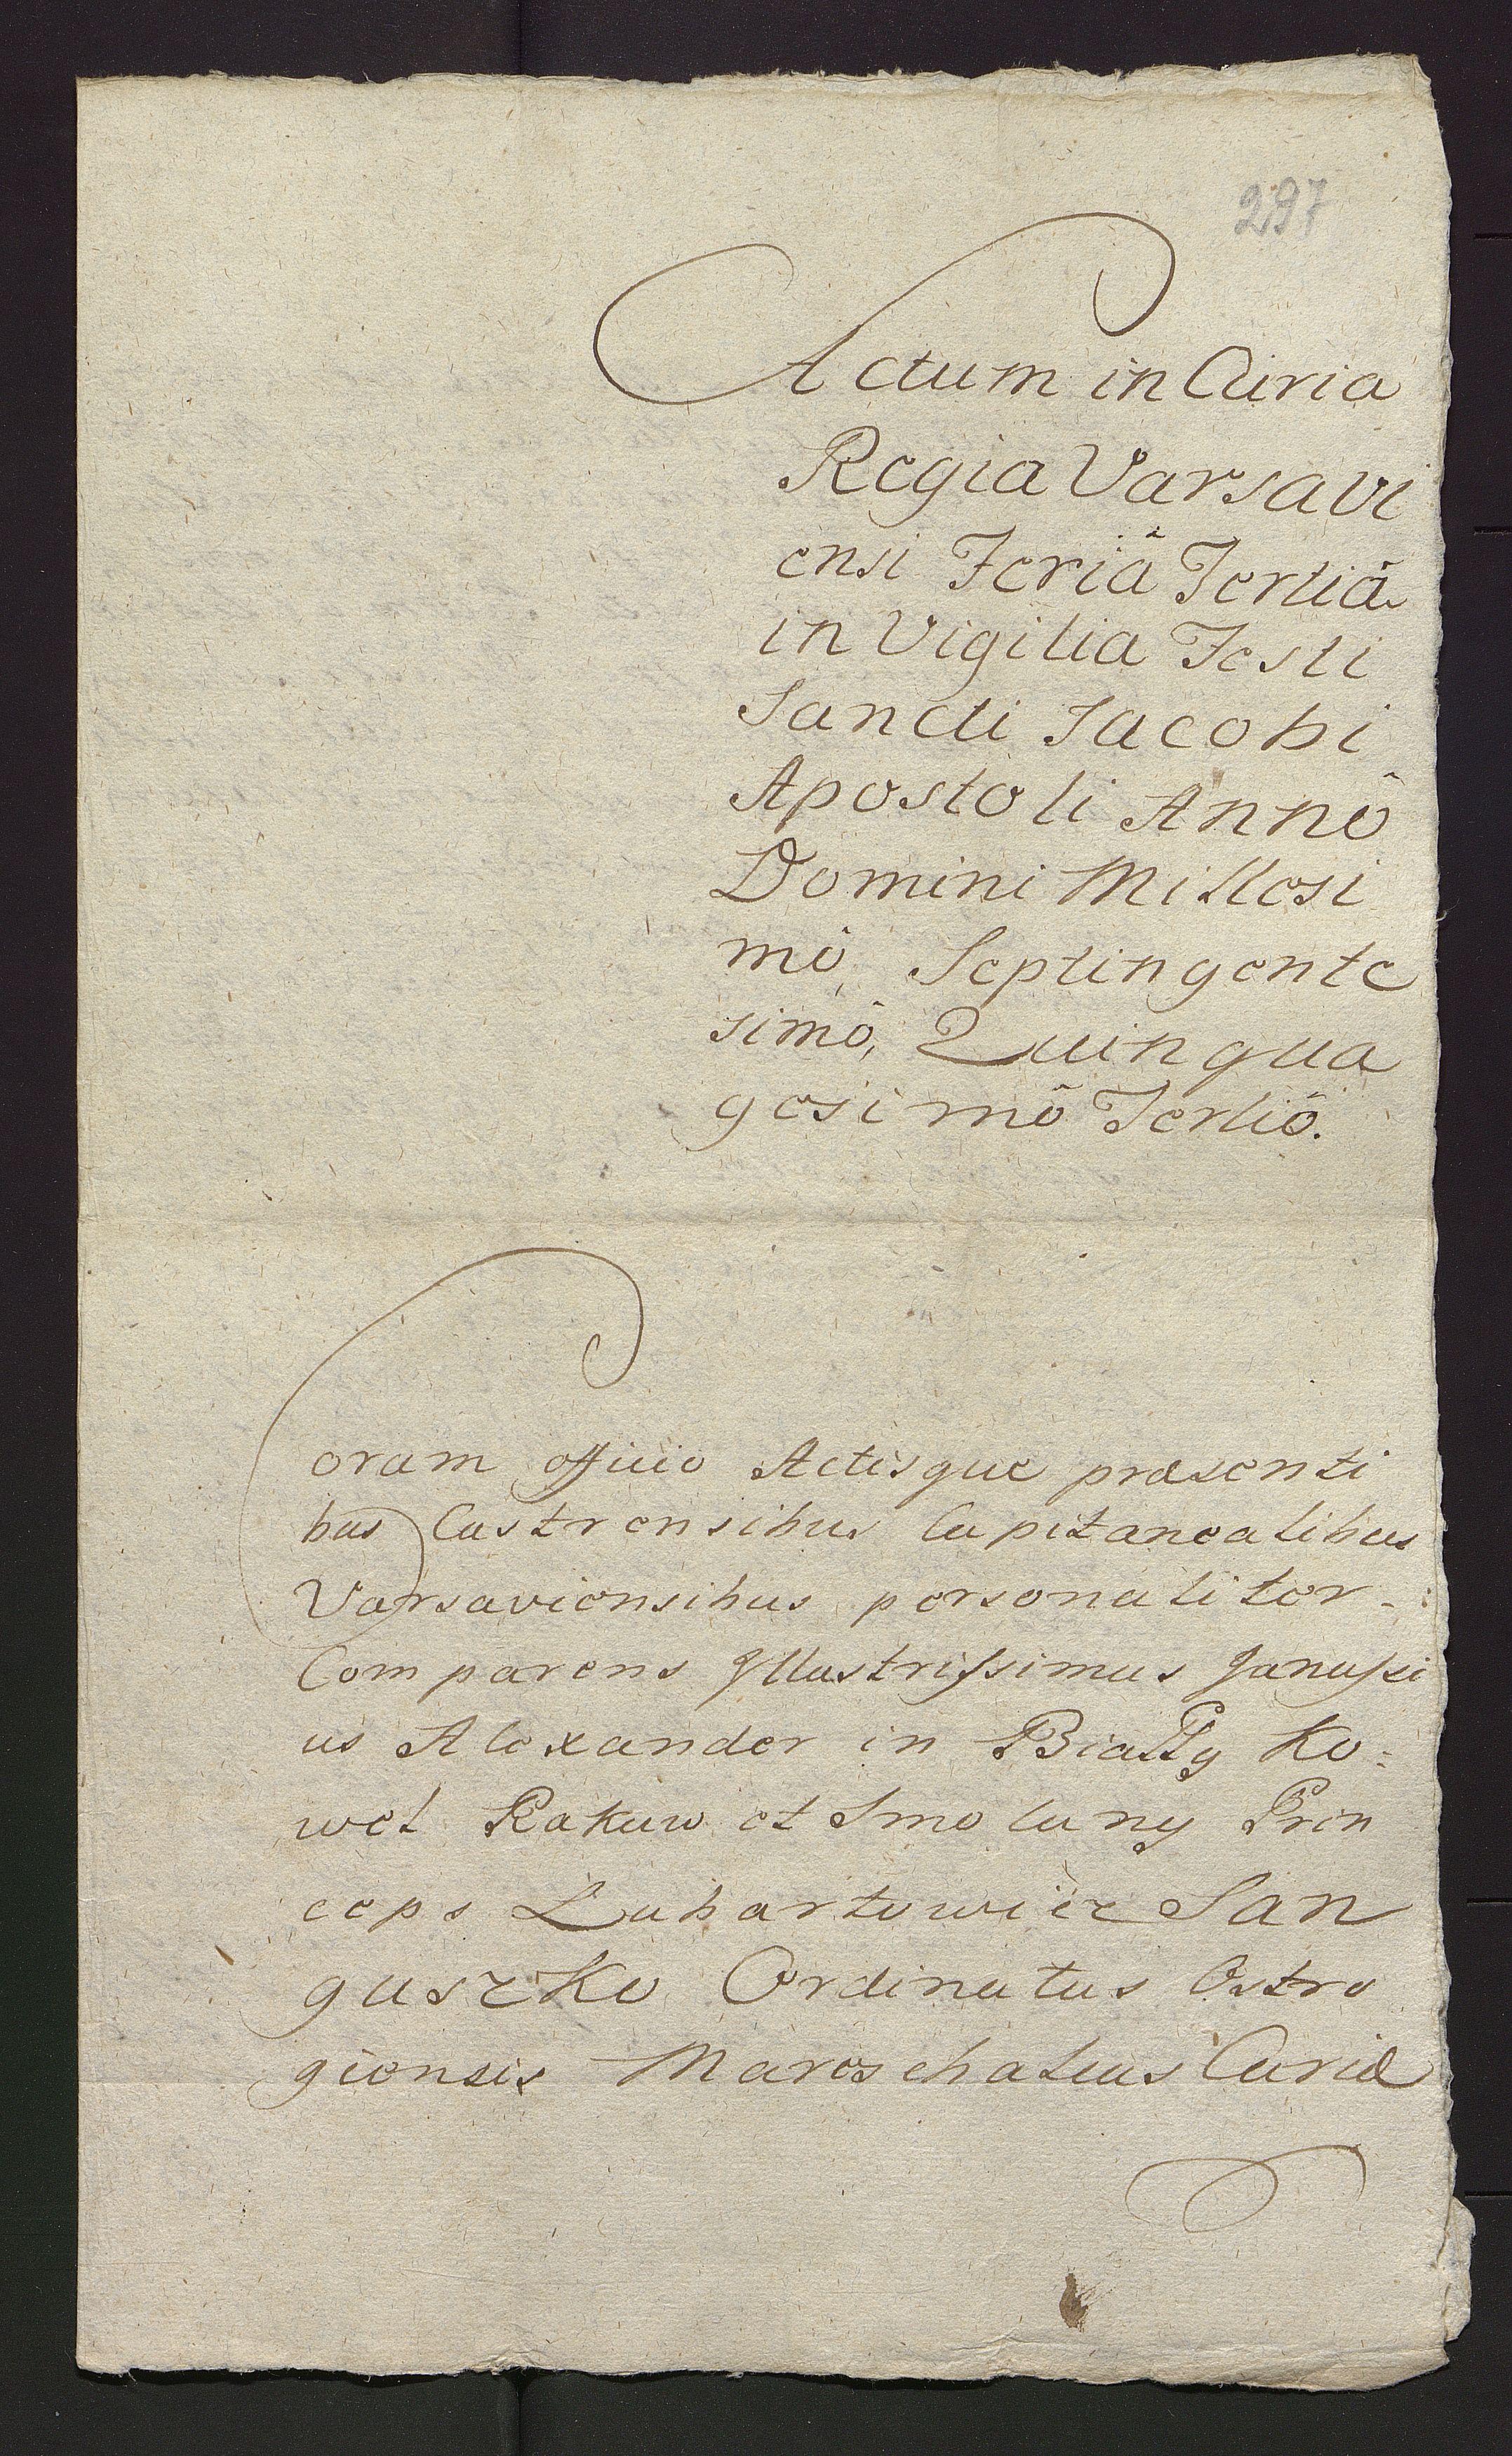 297
Actum in Curia
Regia Varsavi
ensi Feriâ Tertiâ
in Vigilia Festi
Sancti Jacobi
Apostoli Annô
Domini Millesi
mô, Septingente
simô, Quinqua
gesimô Tertiô.
Coram officio Actisque præsenti
bus Castrensibus Capitanealibus
Varsaviensibus personaliter
Comparens Illustrissimus Janussi
us Alexander in Białły Ko-
wel Rakuw et Smolany Prin
ceps Lubartowicz San
guszko Ordinatus Ostro
giensis Mareschalcus Curiæ